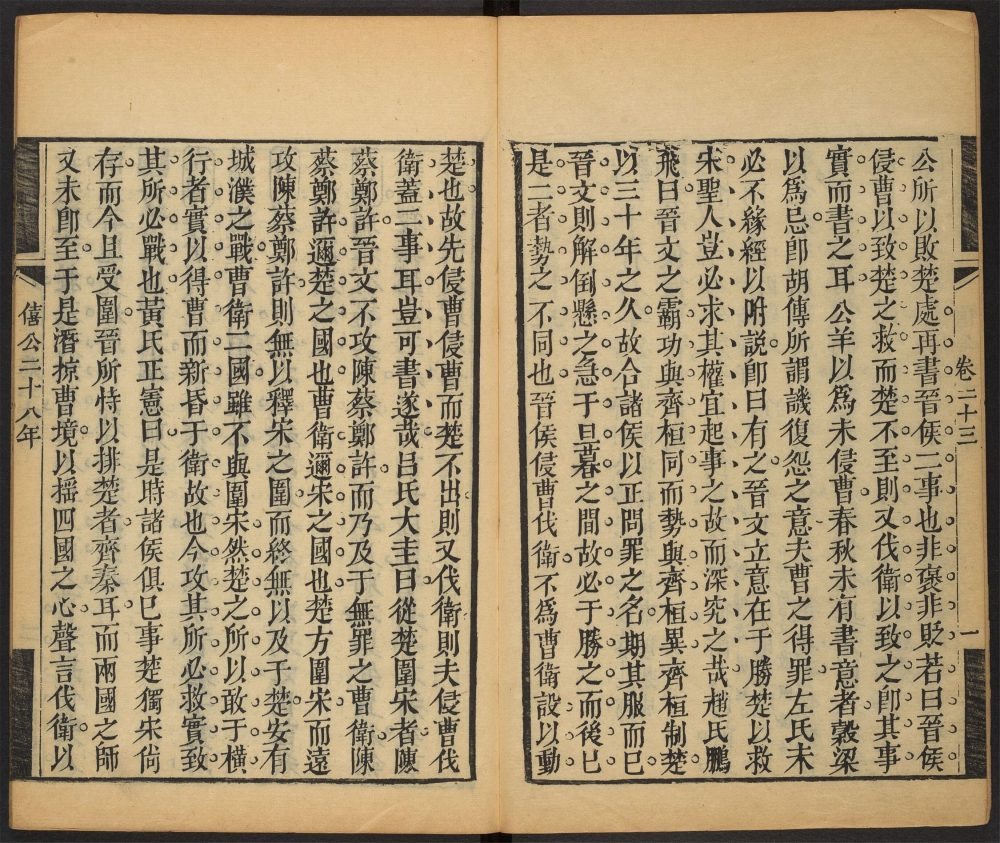 卷二十三
一
公所以敗楚處再書晉侯二事也非褒非貶若曰晉侯
侵曹以致楚之救而楚不至則又伐衛以致之卽其事
實而書之耳公羊以爲未侵曹春秋未有書意者穀梁
以爲忌卽胡傳所謂譏復怨之意夫曹之得罪左氏未
必不緣經以附說卽曰有之晉文立意在于勝楚以救
宋聖人豈必求其權宜起事之故而深究之哉趙氏鵬
飛曰晉文之霸功與齊桓同而勢與齊桓異齊桓制楚
以三十年之久故合諸侯以正問罪之名期其服而已
晉文則解倒懸之急于旦暮之間故必于勝之而後已
是二者勢之不同也晉侯侵曹伐衛不爲曹衛設以動
楚也故先侵曹侵曹而楚不出則又伐衛則夫侵曹伐
衛蓋二事耳豈可書遂哉呂氏大圭曰從楚圍宋者陳
蔡鄭許晉文不攻陳蔡鄭許而乃及于無罪之曹衛陳
蔡鄭許邇楚之國也曹衛邇宋之國也楚方圍宋而遠
攻陳蔡鄭許則無以釋宋之圍而終無以及于楚安有
城濮之戰曹衛二國雖不與圍宋然楚之所以敢于橫
行者實以得曹而新昏于衛故也今攻其所必救實致
其所必戰也黃氏正憲曰是時諸侯俱已事楚獨宋尙
存而今且受圍晉所恃以排楚者齊秦耳而兩國之師
又未卽至于是潛掠曹境以搖四國之心聲言伐衛以
僖公二十八年